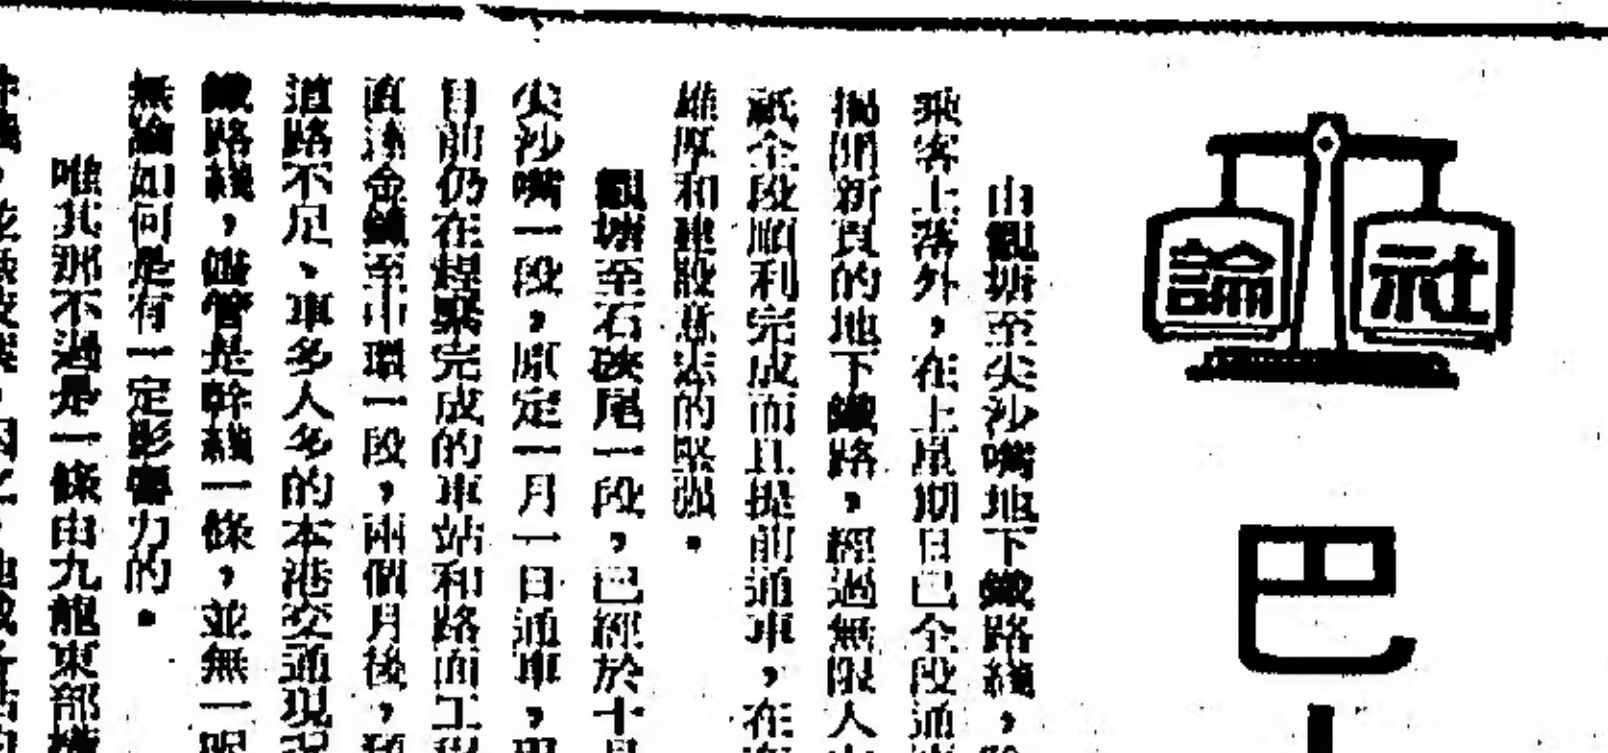 社論
巴
由觀塘至尖沙嘴地下鐵路綫，
乘客上落外，在上星期日已全段通
揭開新頁的地下鐵路，經過無限人
祇全段順利完成而且提前通車，在
雄厚和建設意志的堅强。
觀塘至石硤尾一段，已經於十
尖沙嘴一段，原定一月一日通車，
目前仍在趕緊完成的車站和路面工
直達金鐘至中環一段，兩個月後，
道路不足、車多人多的本港交通現
鐵路綫，儘管是幹綫一條，並無一
無論如何是有一定影響力的。
唯其那不過是一條由九龍東部